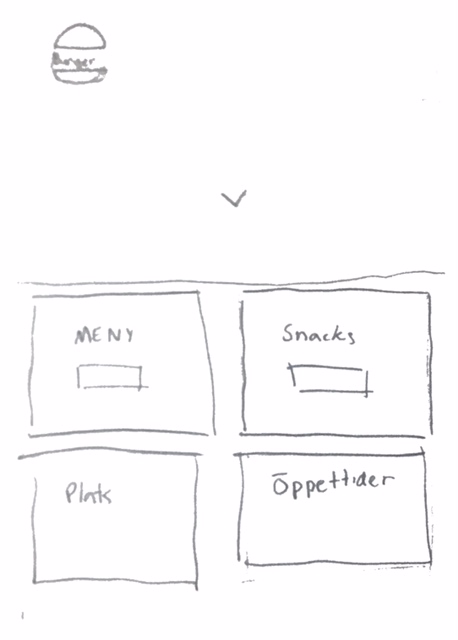 Burger
MENY
Snacks
Plats
Öppettider